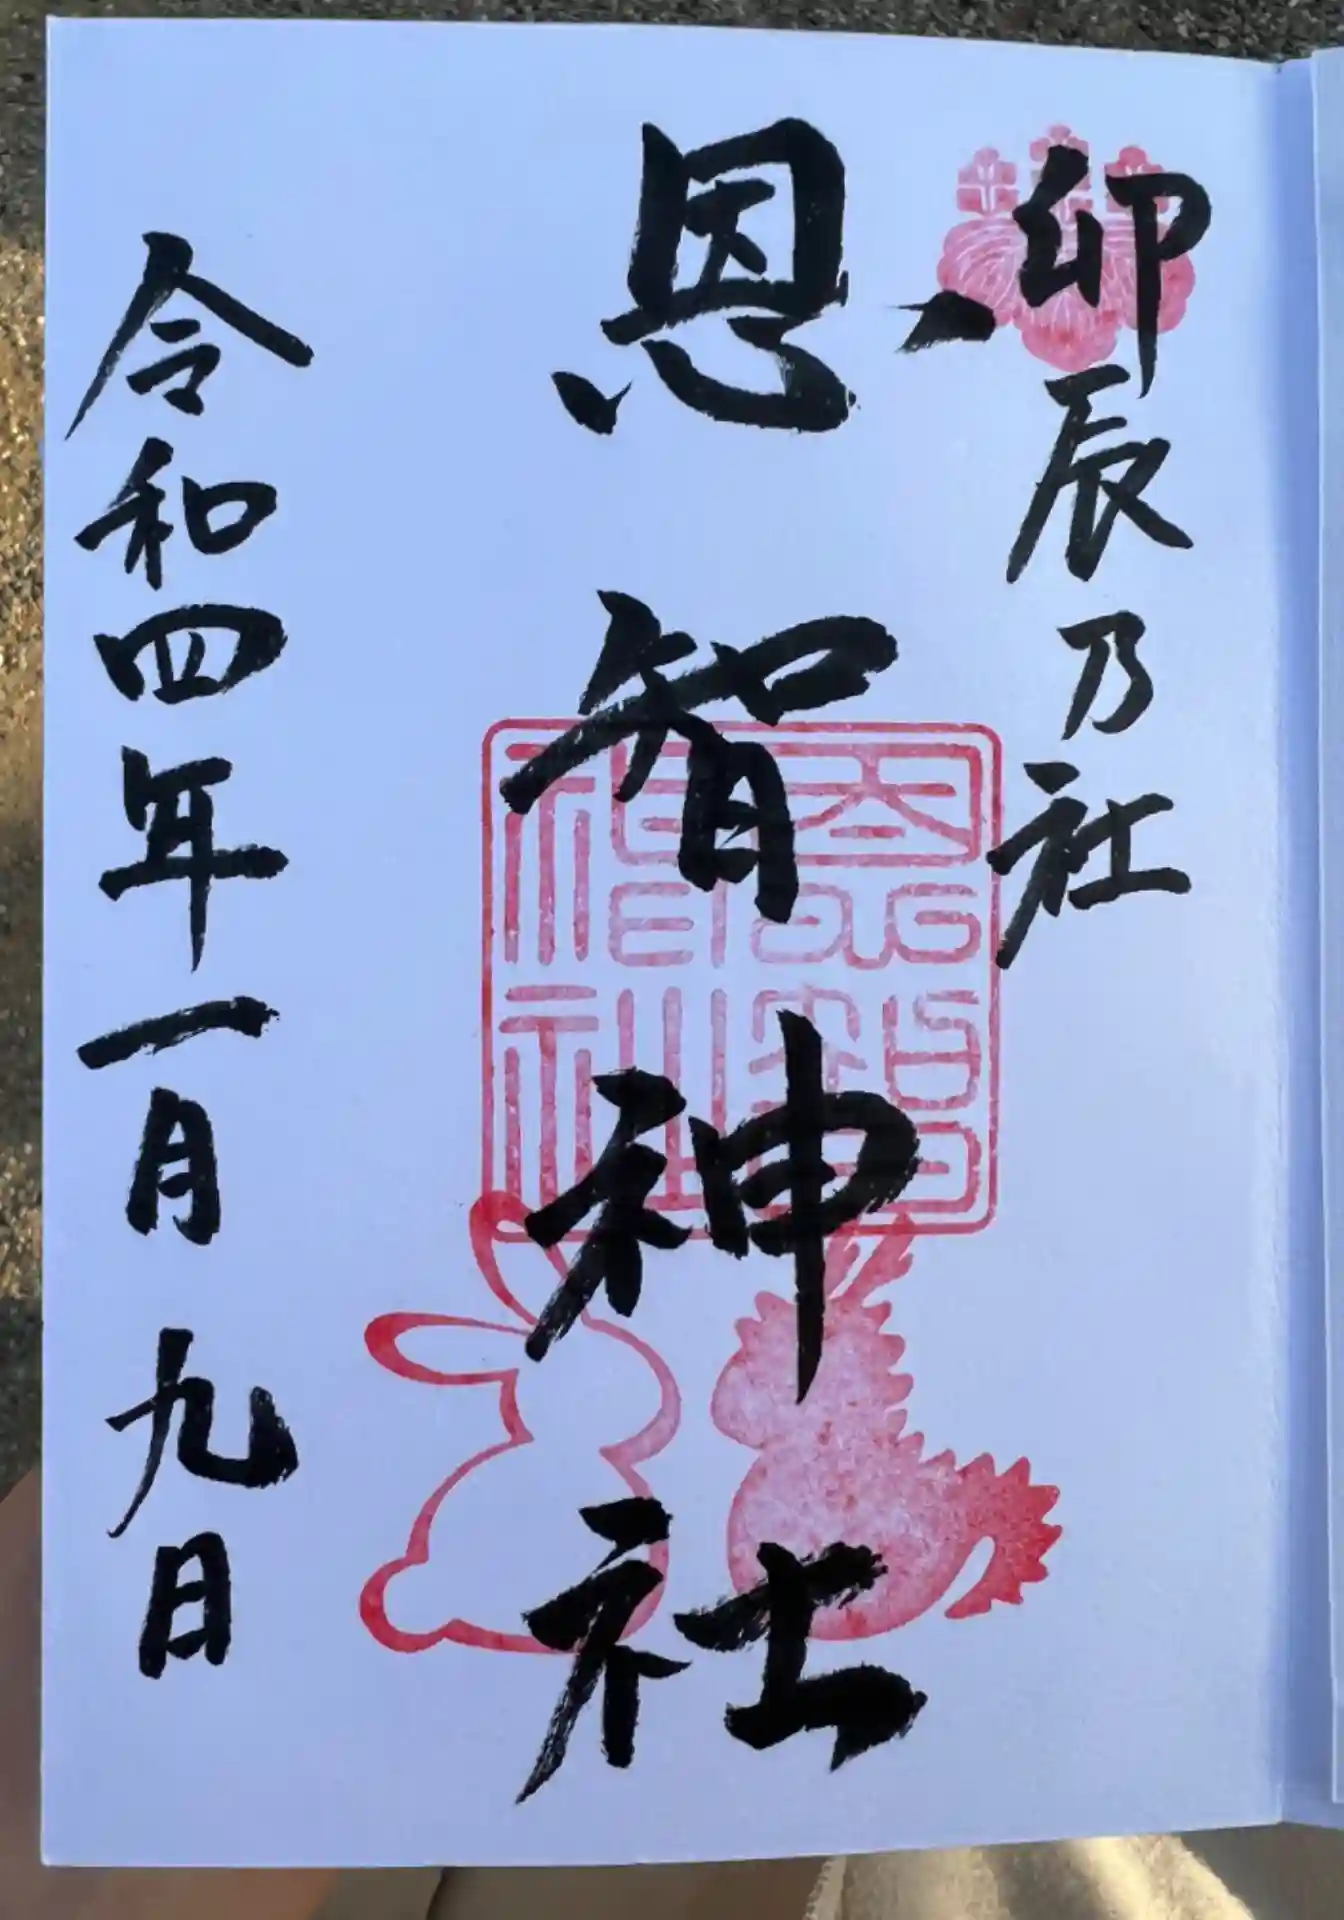 卯辰乃社
恩智神社
恩智神社
令和四年一月九日